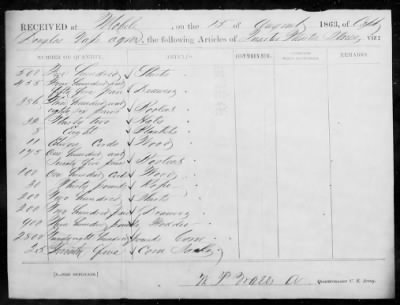 RECEIVED at Mobile, on the 15 of August 1863, of Capt
Douglas Vass aqm, the following Articles of Quarter Master Stores, VIZ:
NUMBER OR QUANTITY. ARTICLES. REMARKS.
200 Two hundred Shirts
455 Four hundred and
fifty five pair Drawers
286 Two hundred and
eighty six pairs Booties
32 Thirty two Hats
8 Eight Blankets
11 Eleven Cords Wood
175 One hundred and
Seventy five pair Booties
100 One hundred Cords Wood
30 Thirty pounds Rope
200 Two hundred Shirts
200 Two hundred pair Drawers
400 Four hundred pounds Fodder
2800 Twenty eight hundred pounds Corn
25 Twenty five Corn Sacks
Quartermaster C. S. Army.